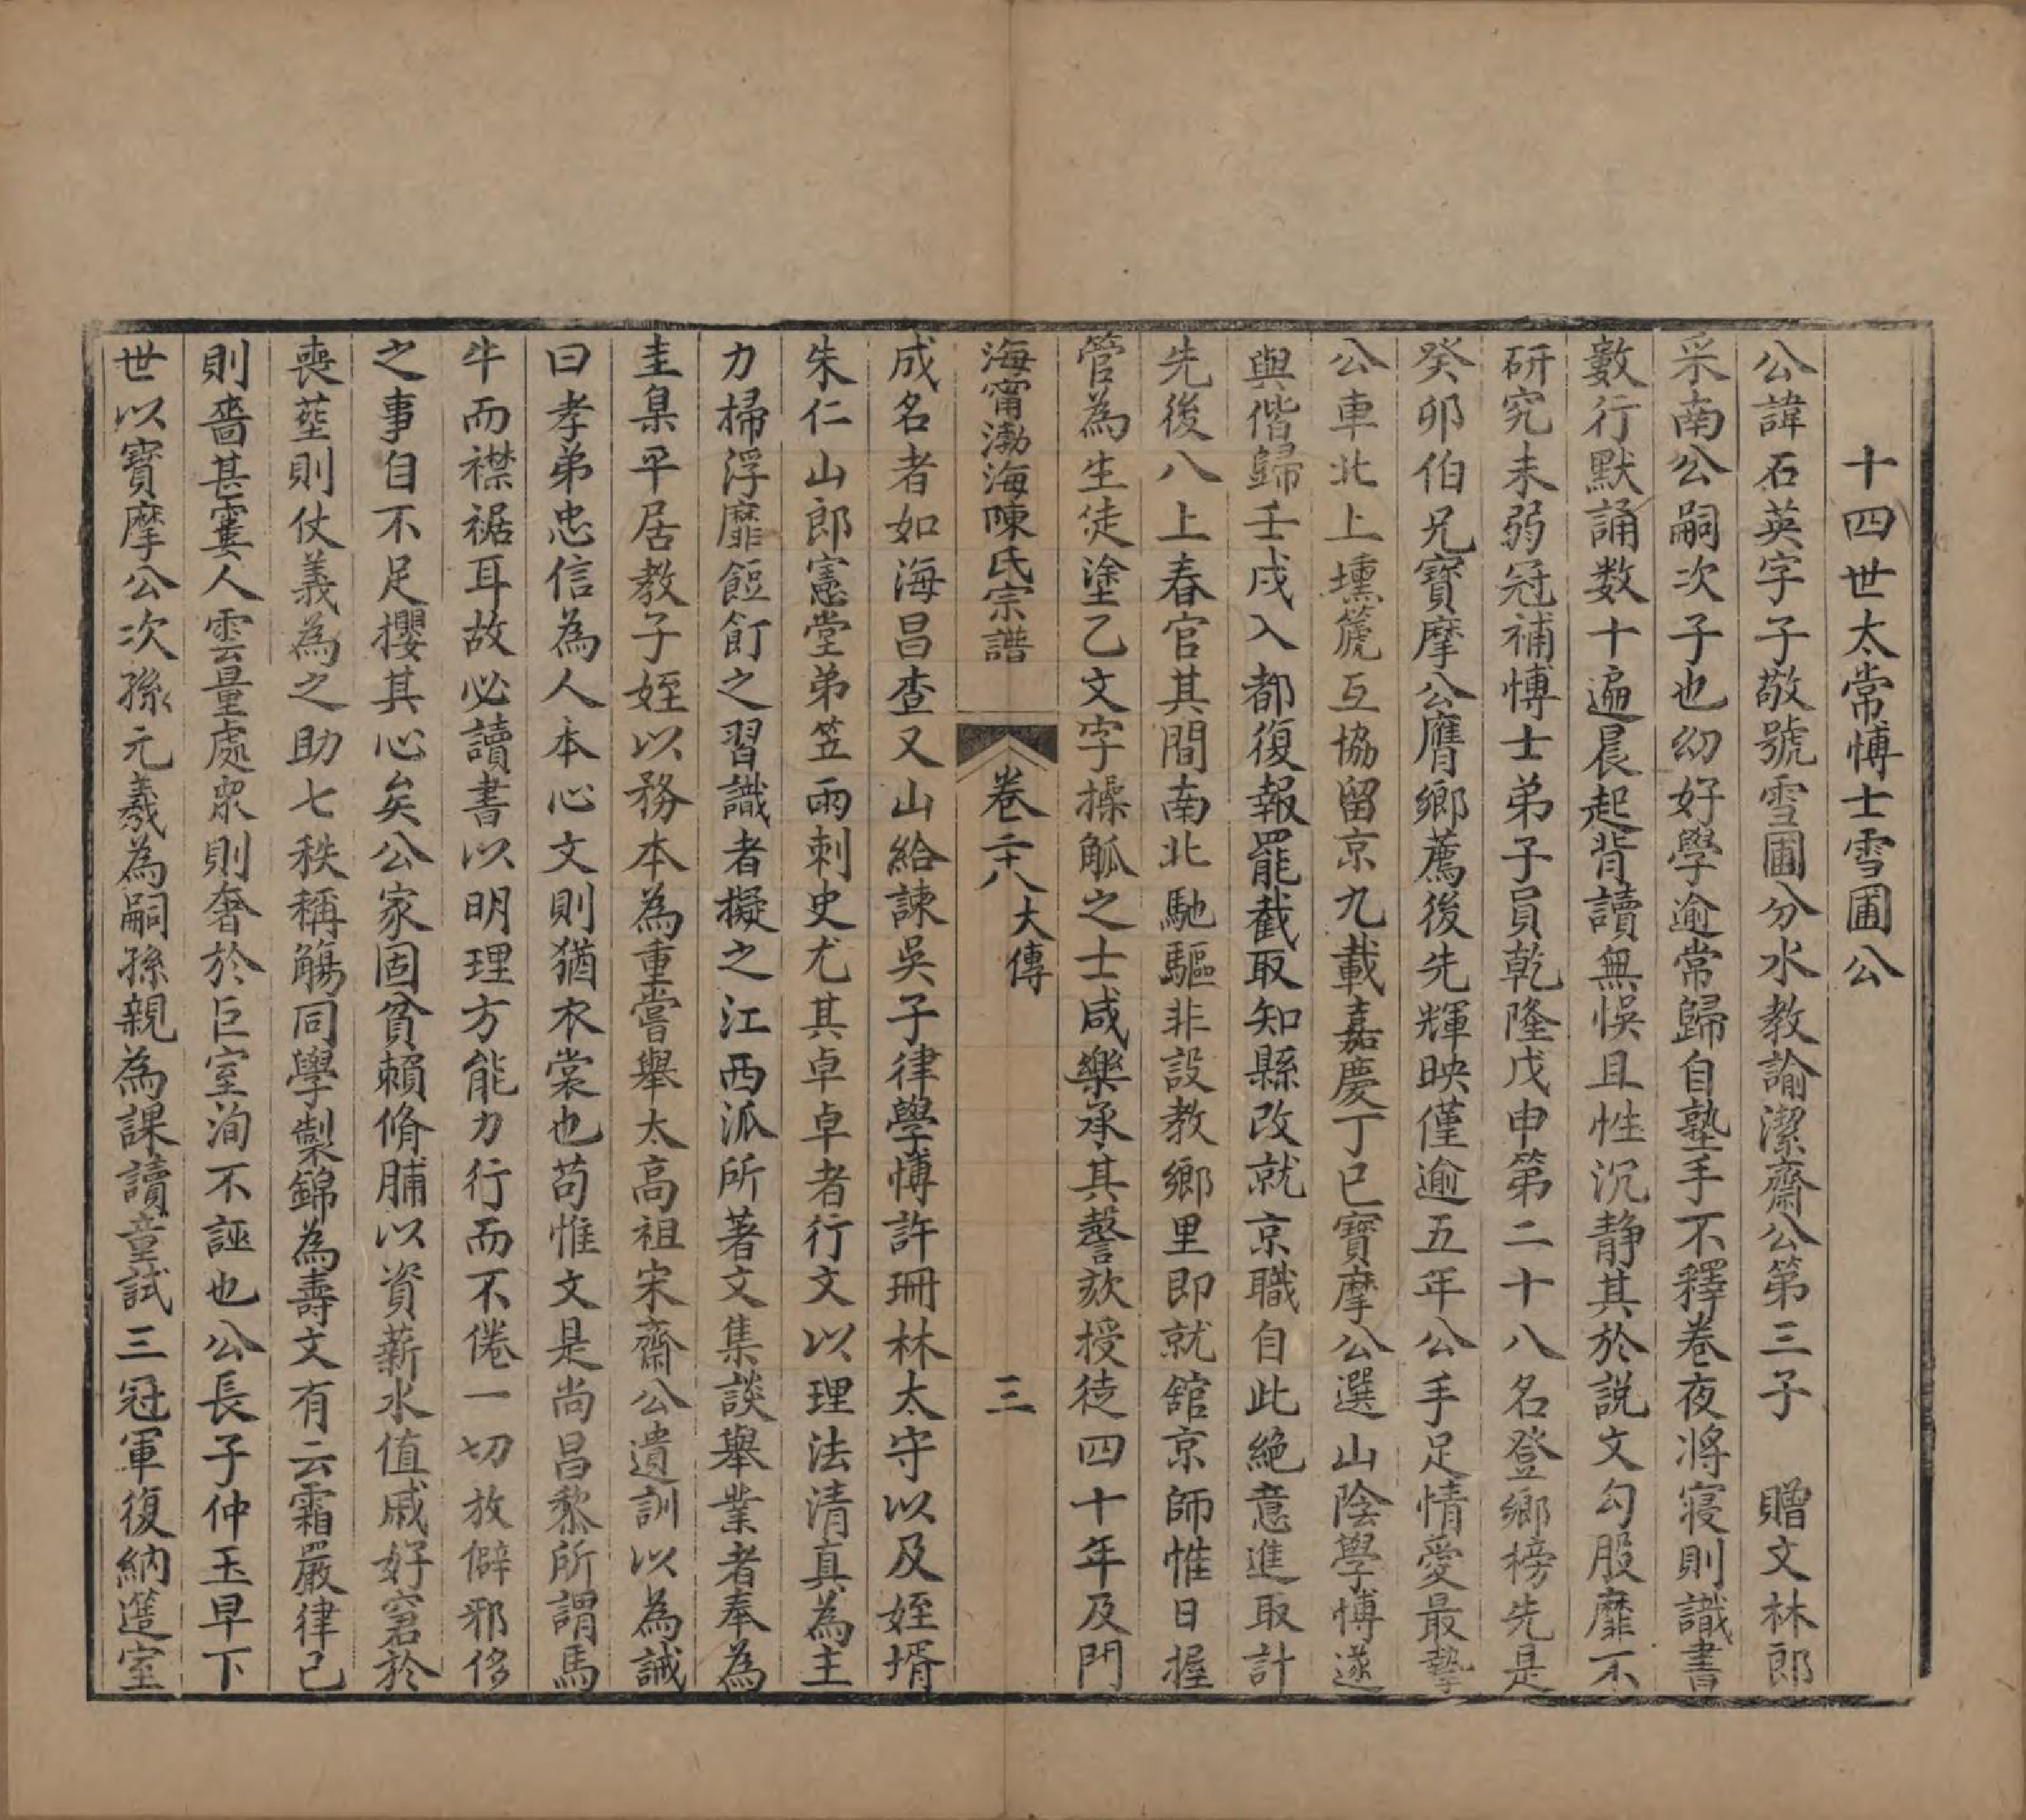 十四世太常博士雪圃公
公諱石英字子敬號雪圃分水教諭潔齋公第三子　贈文林郎
采南公嗣次子也幼好學逾常歸自塾手不釋卷夜將寢則識書
數行默誦数十遍晨起背讀無悞且性沉静其於說文勾股靡不
研究未弱冠補博士弟子員乾隆戊申第二十八名登鄉榜先是
癸卯伯兄寶摩公膺鄉薦後先輝映僅逾五年公手足情愛最摯
公車北上壎篪互協留京九載嘉慶丁巳寶摩公選山陰學博遂
與偕歸壬戌入都復報罷截取知縣改就京職自此絶意進取計
先後八上春官其間南北馳驅非設教鄉里即就舘京師惟日握
管為生徒塗乙文字操觚之士咸樂承其謦欬授徒四十年及門
海甯渤海陳氏宗譜　卷二十八　大傳　三
成名者如海昌查又山給諫吳子律學博許珊林太守以及姪壻
朱仁山郎憲堂弟笠雨刺史尤其卓卓者行文以理法清真為主
力掃浮靡餖飣之習識者擬之江西派所著文集談舉業者奉為
圭臬平居教子姪以務本為重嘗舉太高祖宋齋公遺訓以為誡
曰孝弟忠信為人本心文則猶衣裳也苟惟文是尚昌黎所謂馬
牛而襟裾耳故必讀書以明理方能力行而不倦一切放僻邪侈
之事自不足攖其心矣公家固貧賴脩脯以資薪水值戚好窘於
喪塟則仗義為之助七秩稱觴同學製錦為壽文有云霜嚴律己
則嗇甚寠人雲量處眾則奢於巨室洵不誣也公長子仲玉早下
世以寶摩公次孫元羲為嗣孫親為課讀童試三冠軍復納簉室